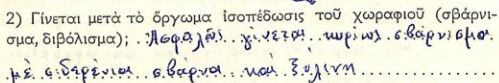 2) Γίνεται μετὰ τὸ ὄργωμα ἰσοπέδωσις τοῦ χωραφιοῦ (σβάρνι-
σμα, διβόλισμα); Ἀσφαλῶς γίνεται κυρίως σβάρνισμα
μὲ σιδερένια σβάρνα καὶ ξύλινη